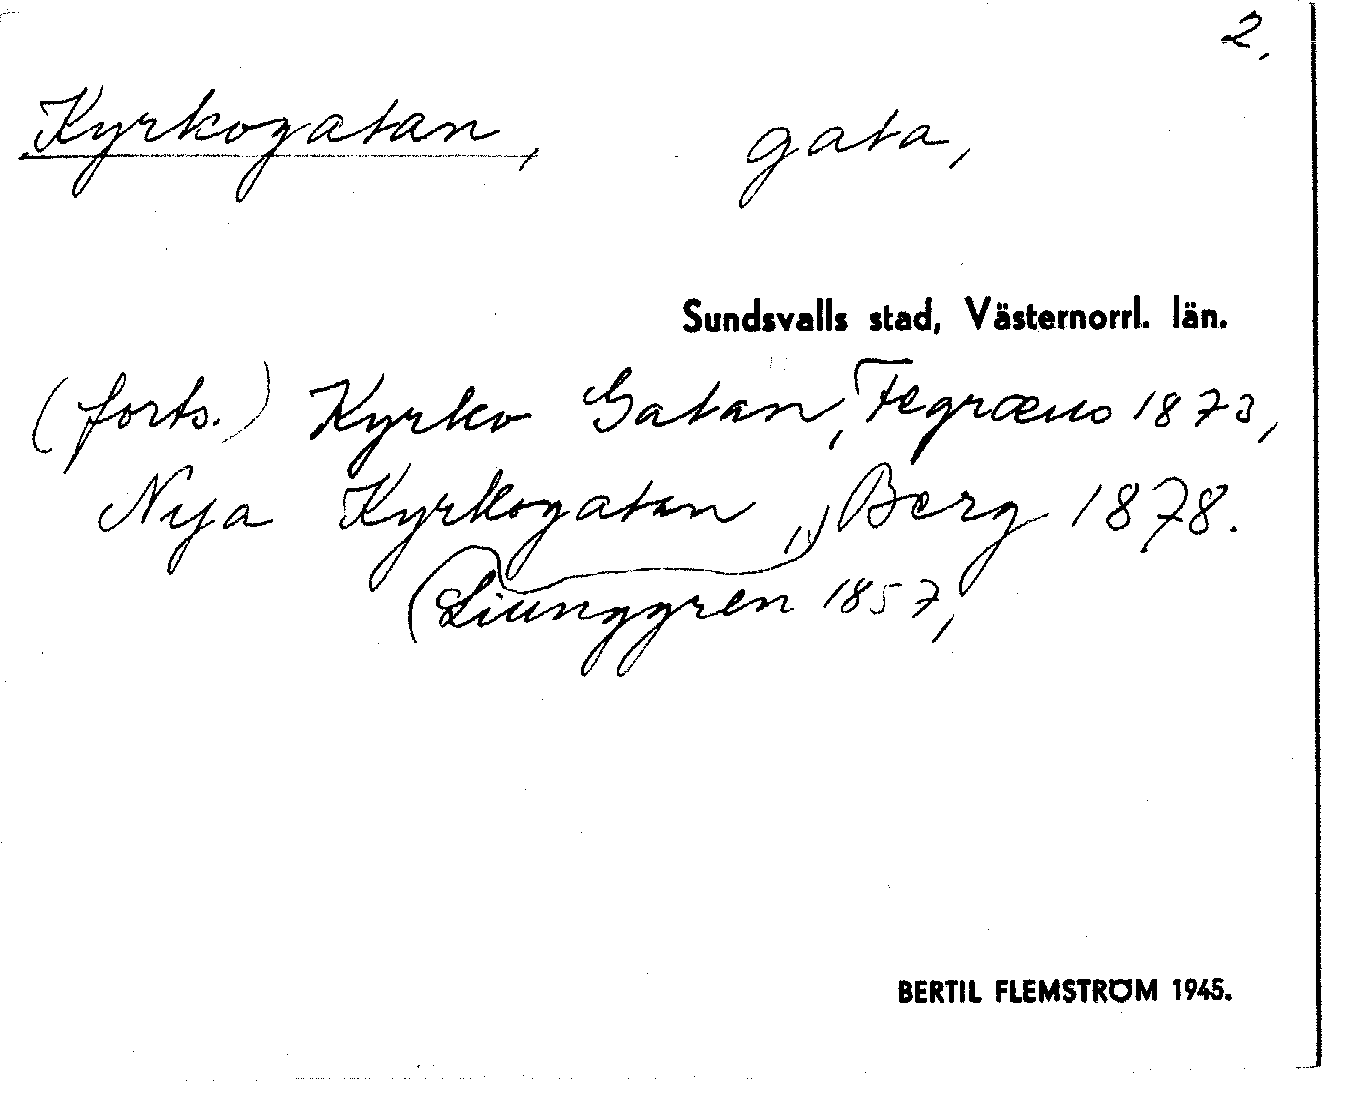 2,
Kyrkogatan, gata,
Sundsvalls stad, Västernorrl. län.
(forts.) Kyrko Gatan, Fegræus 1873,
Nya Kyrkogatan, Berg 1878.
Liunggren 1857,
BERTIL FLEMSTRÖM 1945.